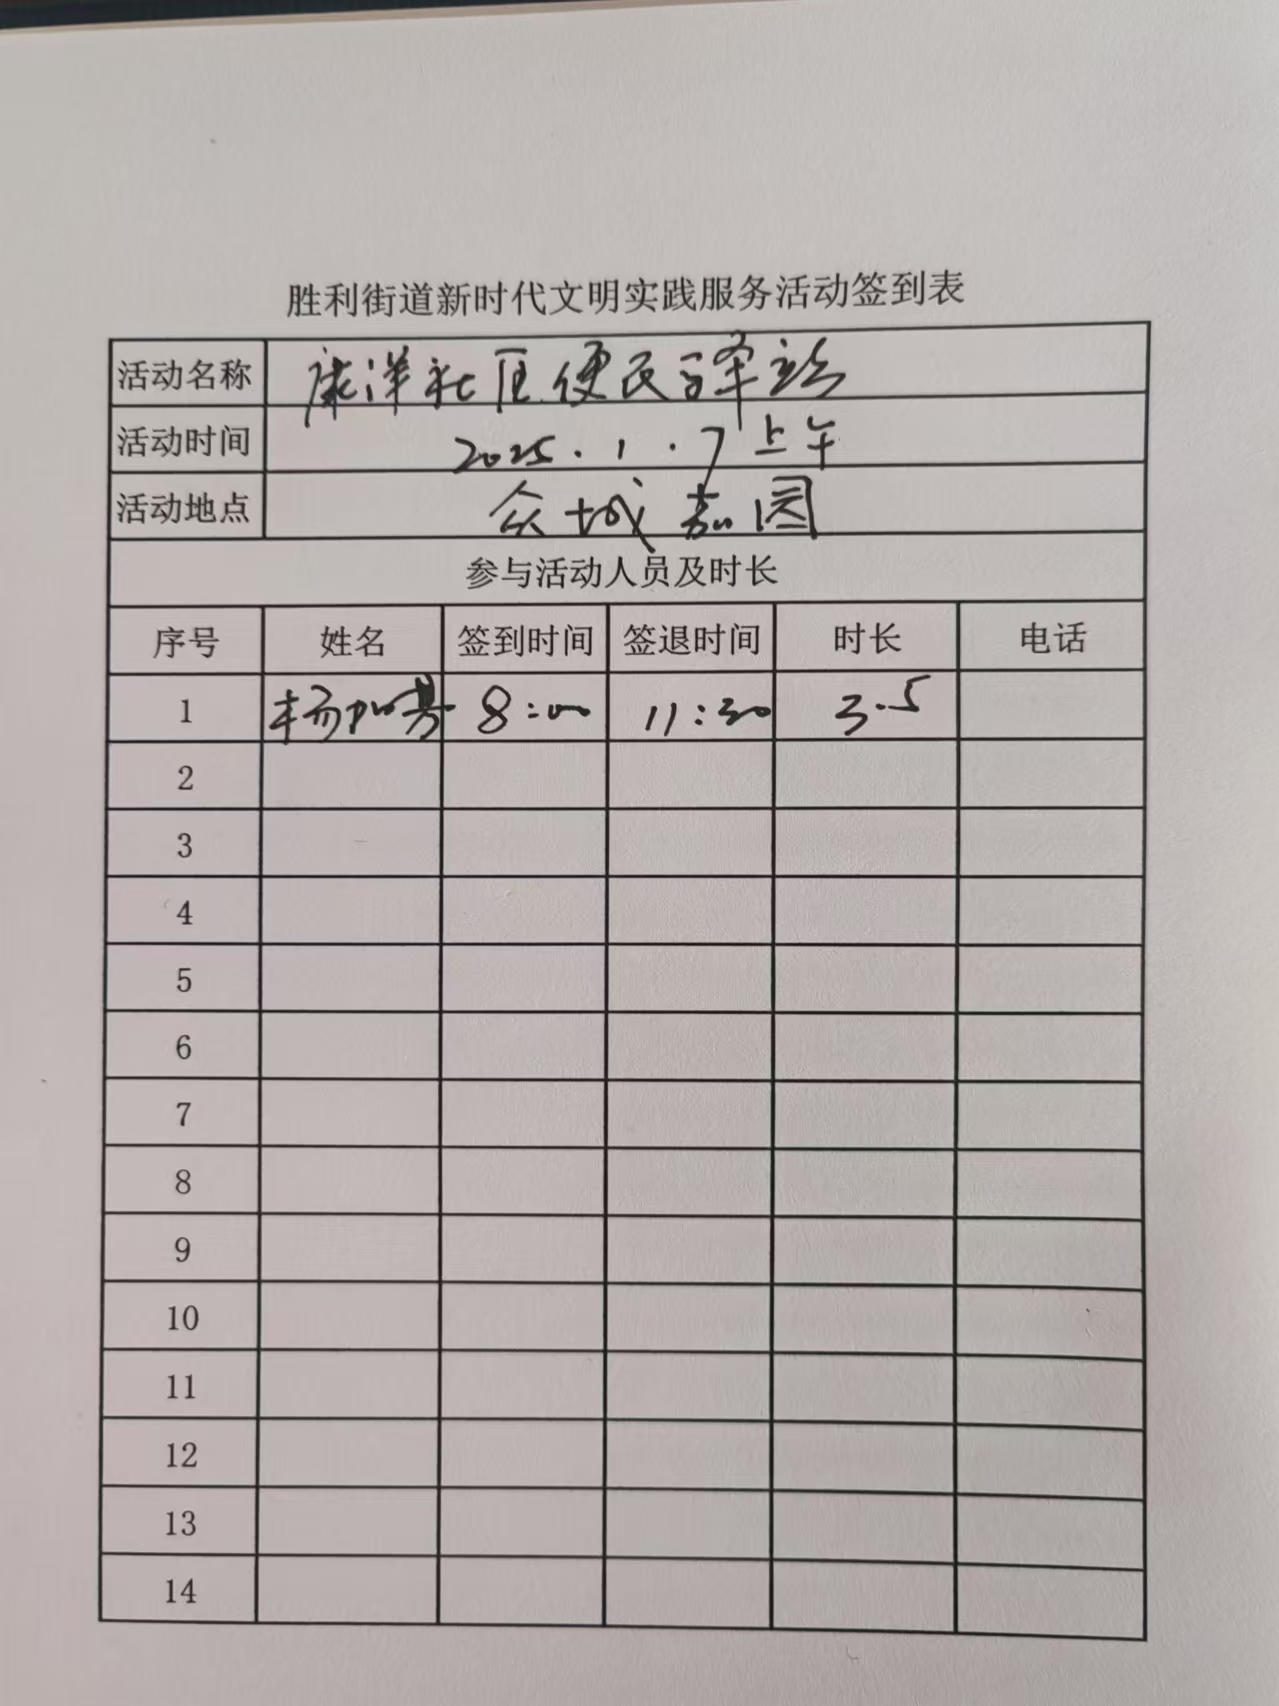 胜利街道新时代文明实践服务活动签到表
活动名称 康洋社区便民驿站
活动时间 2025.1.7上午
活动地点 众城嘉园
参与活动人员及时长
序号 姓名 签到时间 签退时间 时长 电话
1 杨 8:00 11:30 3.5
2
3
4
5
6
7
8
9
10
11
12
13
14